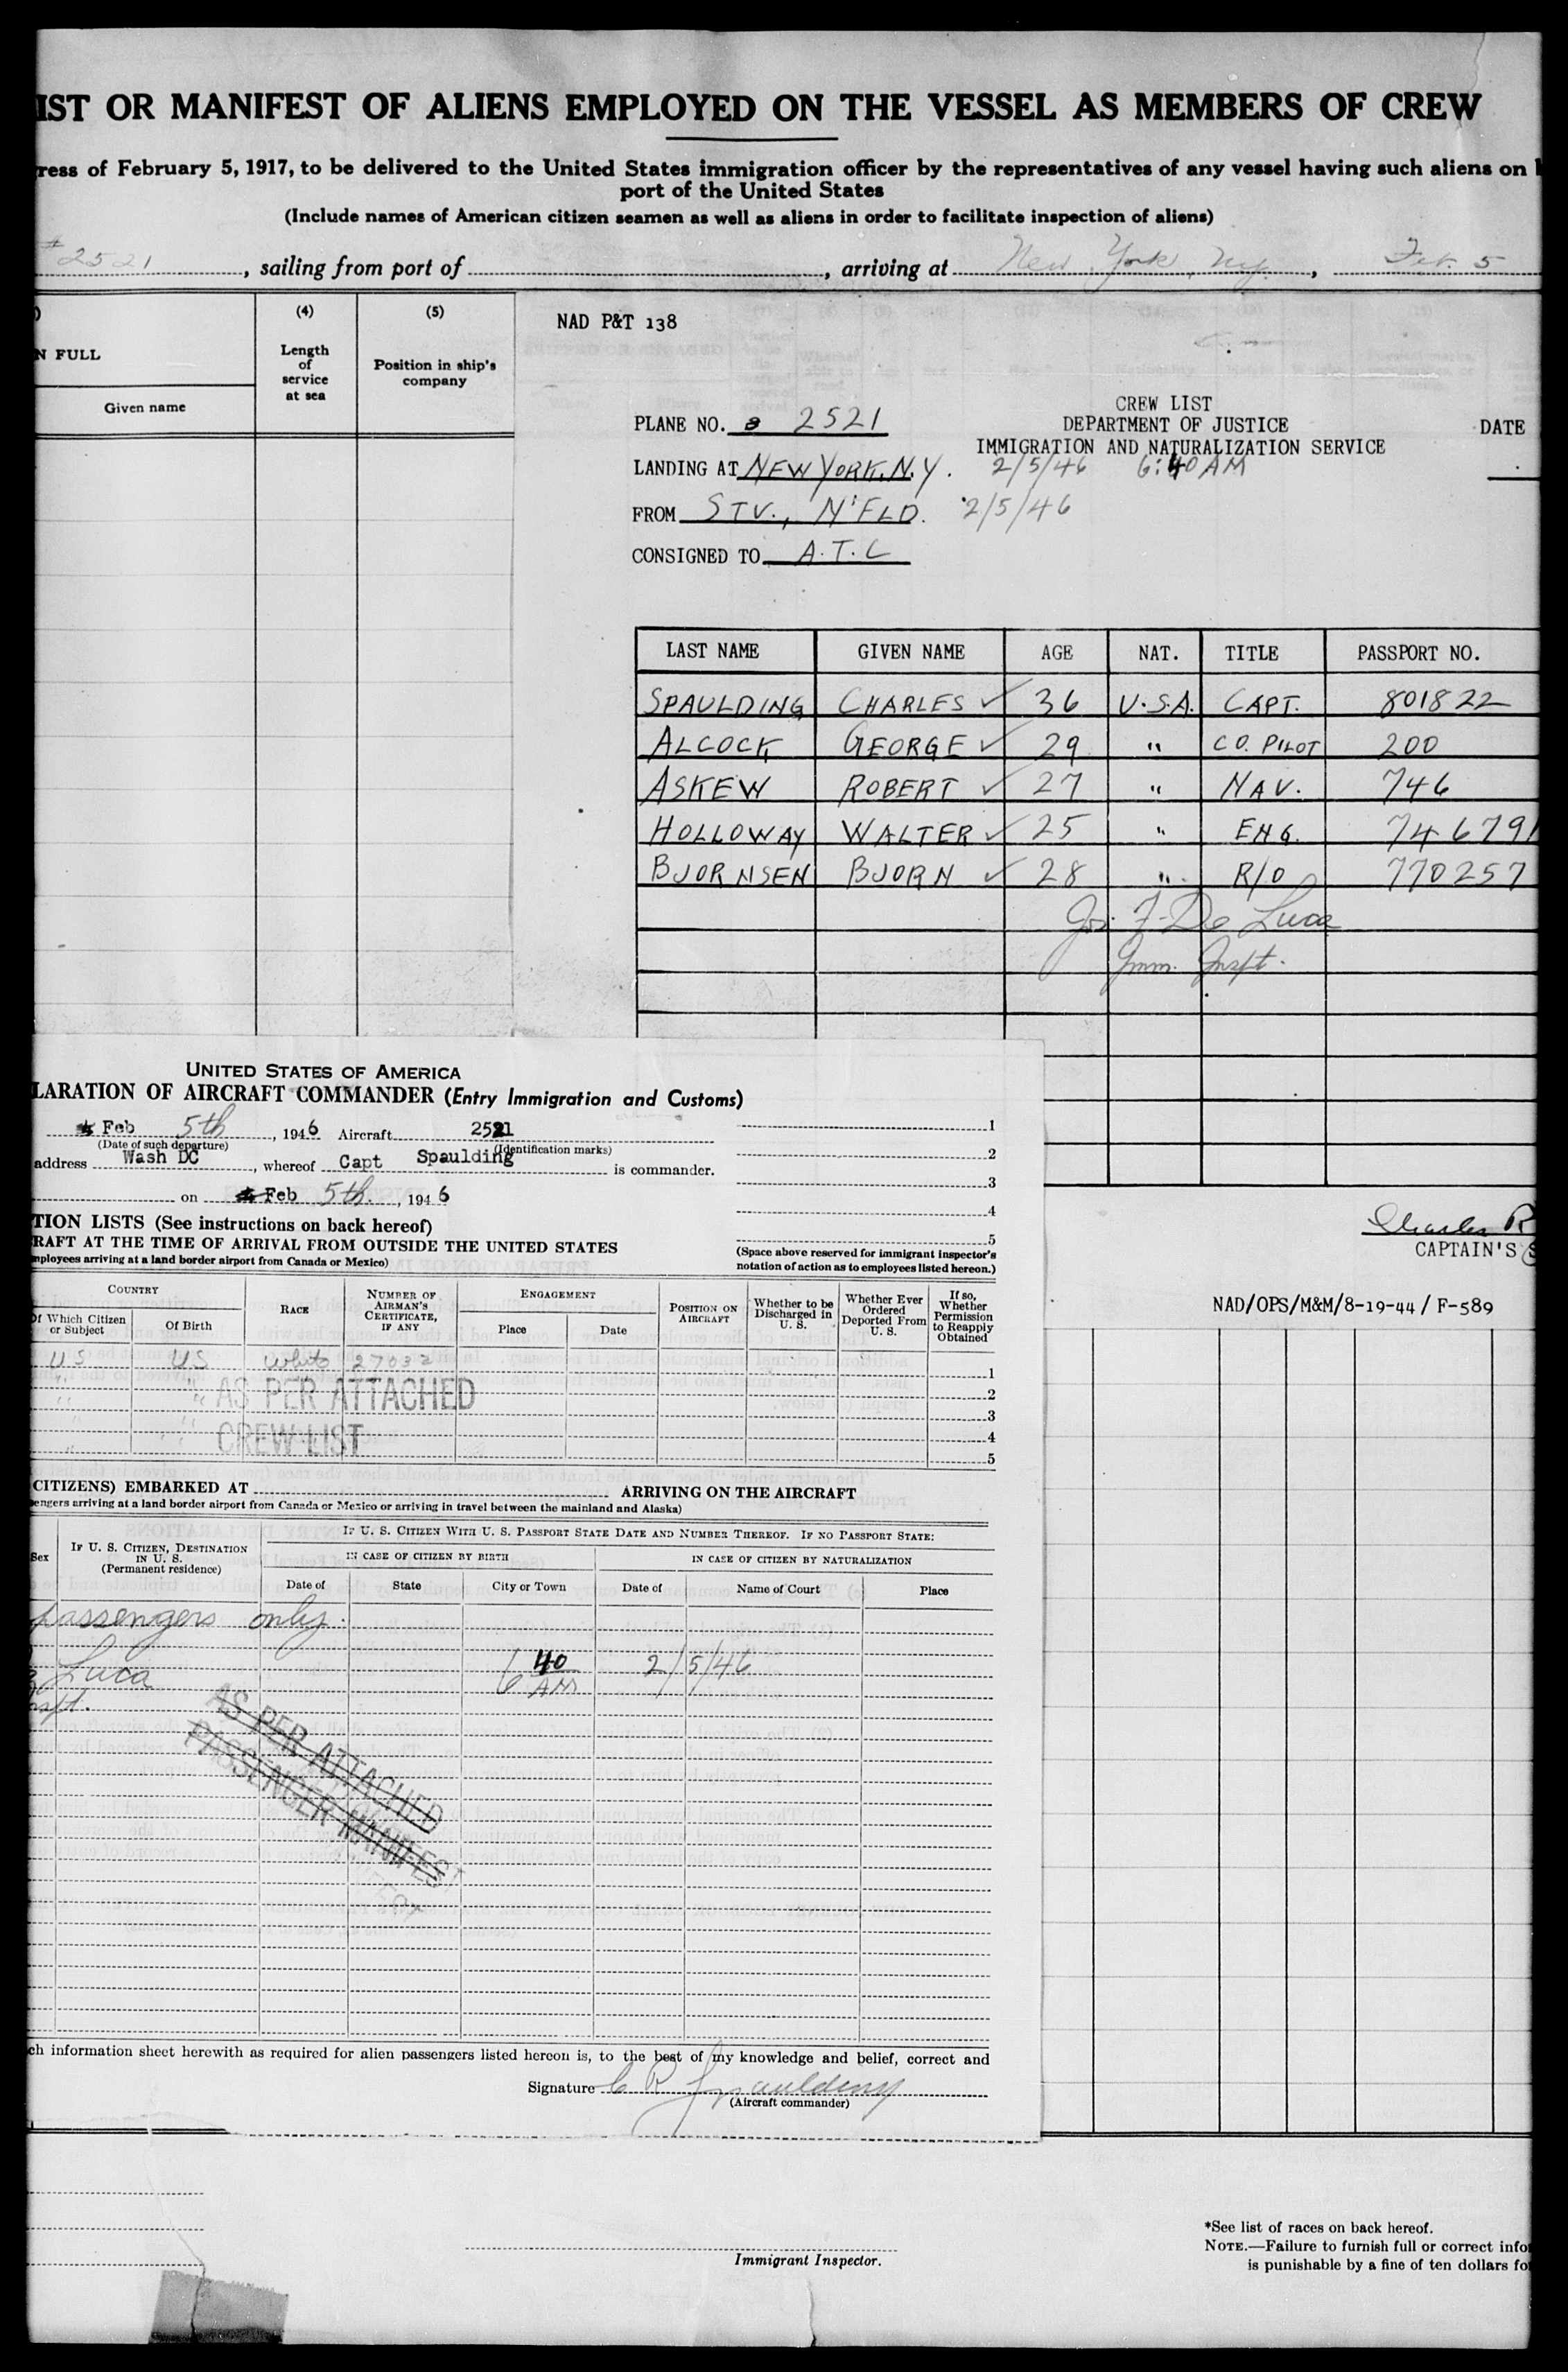 IST OR MANIFEST OF ALIENS EMPLOYED ON THE VESSEL AS MEMBERS OF CREW
ress of February 5, 1917, to be delivered to the United States immigration officer by the representatives of any vessel having such aliens on
port of the United States
(Include names of American citizen seamen as well as aliens in order to facilitate inspection of aliens)
#2521, sailing from port of, arriving at New York, NY, Feb. 5
(4) (5)
N FULL Length of service at sea Position in ship's company
Given name
NAD P&T 138
CREW LIST
PLANE NO. 2521 DEPARTMENT OF JUSTICE DATE
IMMIGRATION AND NATURALIZATION SERVICE
LANDING AT NEW YORK, N.Y. 2/5/46 6:40 AM
FROM STV., N'FLD. 2/5/46
CONSIGNED TO A.T.C
LAST NAME GIVEN NAME AGE NAT. TITLE PASSPORT NO.
SPAULDING CHARLES ✓ 36 U.S.A. CAPT. 801822
ALCOCK GEORGE ✓ 29 " CO. PILOT 200
ASKEW ROBERT ✓ 27 " NAV. 746
HOLLOWAY WALTER ✓ 25 " ENG. 746791
BJORNSEN BJORN ✓ 28 " R/O 770257
Jos. F. De Luca
Imm. Inspt.
UNITED STATES OF AMERICA
LARATION OF AIRCRAFT COMMANDER (Entry Immigration and Customs)
Feb 5th, 1946 Aircraft 2521 1
(Date of such departure) (Identification marks) 2
address Wash DC, whereof Capt Spaulding is commander.
3
on Feb 5th, 1946
4
TION LISTS (See instructions on back hereof)
5
RAFT AT THE TIME OF ARRIVAL FROM OUTSIDE THE UNITED STATES (Space above reserved for immigrant inspector's
mployees arriving at a land border airport from Canada or Mexico) notation of action as to employees listed hereon.)
Charles R
CAPTAIN'S S
NAD/OPS/M&M/8-19-44/ F-589
COUNTRY RACE NUMBER OF AIRMAN'S CERTIFICATE, IF ANY ENGAGEMENT POSITION ON AIRCRAFT Whether to be Discharged in U. S. Whether Ever Ordered Deported From U. S. If so, Whether Permission to Reapply Obtained
Of Which Citizen or Subject Of Birth Place Date
US US White 27032 1
" " AS PER ATTACHED 2
" 3
" " CREW LIST 4
" 5
CITIZENS) EMBARKED AT ARRIVING ON THE AIRCRAFT
sengers arriving at a land border airport from Canada or Mexico or arriving in travel between the mainland and Alaska)
Sex IF U. S. CITIZEN, DESTINATION IN U. S. (Permanent residence) IF U. S. CITIZEN WITH U. S. PASSPORT STATE DATE AND NUMBER THEREOF. IF NO PASSPORT STATE:
IN CASE OF CITIZEN BY BIRTH IN CASE OF CITIZEN BY NATURALIZATION
Date of State City or Town Date of Name of Court Place
passengers only.
Luca 6 40 AM 2/5/46
nspt.
AS PER ATTACHED
PASSENGER MANIFEST
ch information sheet herewith as required for alien passengers listed hereon is, to the best of my knowledge and belief, correct and
Signature C R Spaulding
(Aircraft commander)
Immigrant Inspector.
*See list of races on back hereof.
NOTE.—Failure to furnish full or correct infor
is punishable by a fine of ten dollars fo